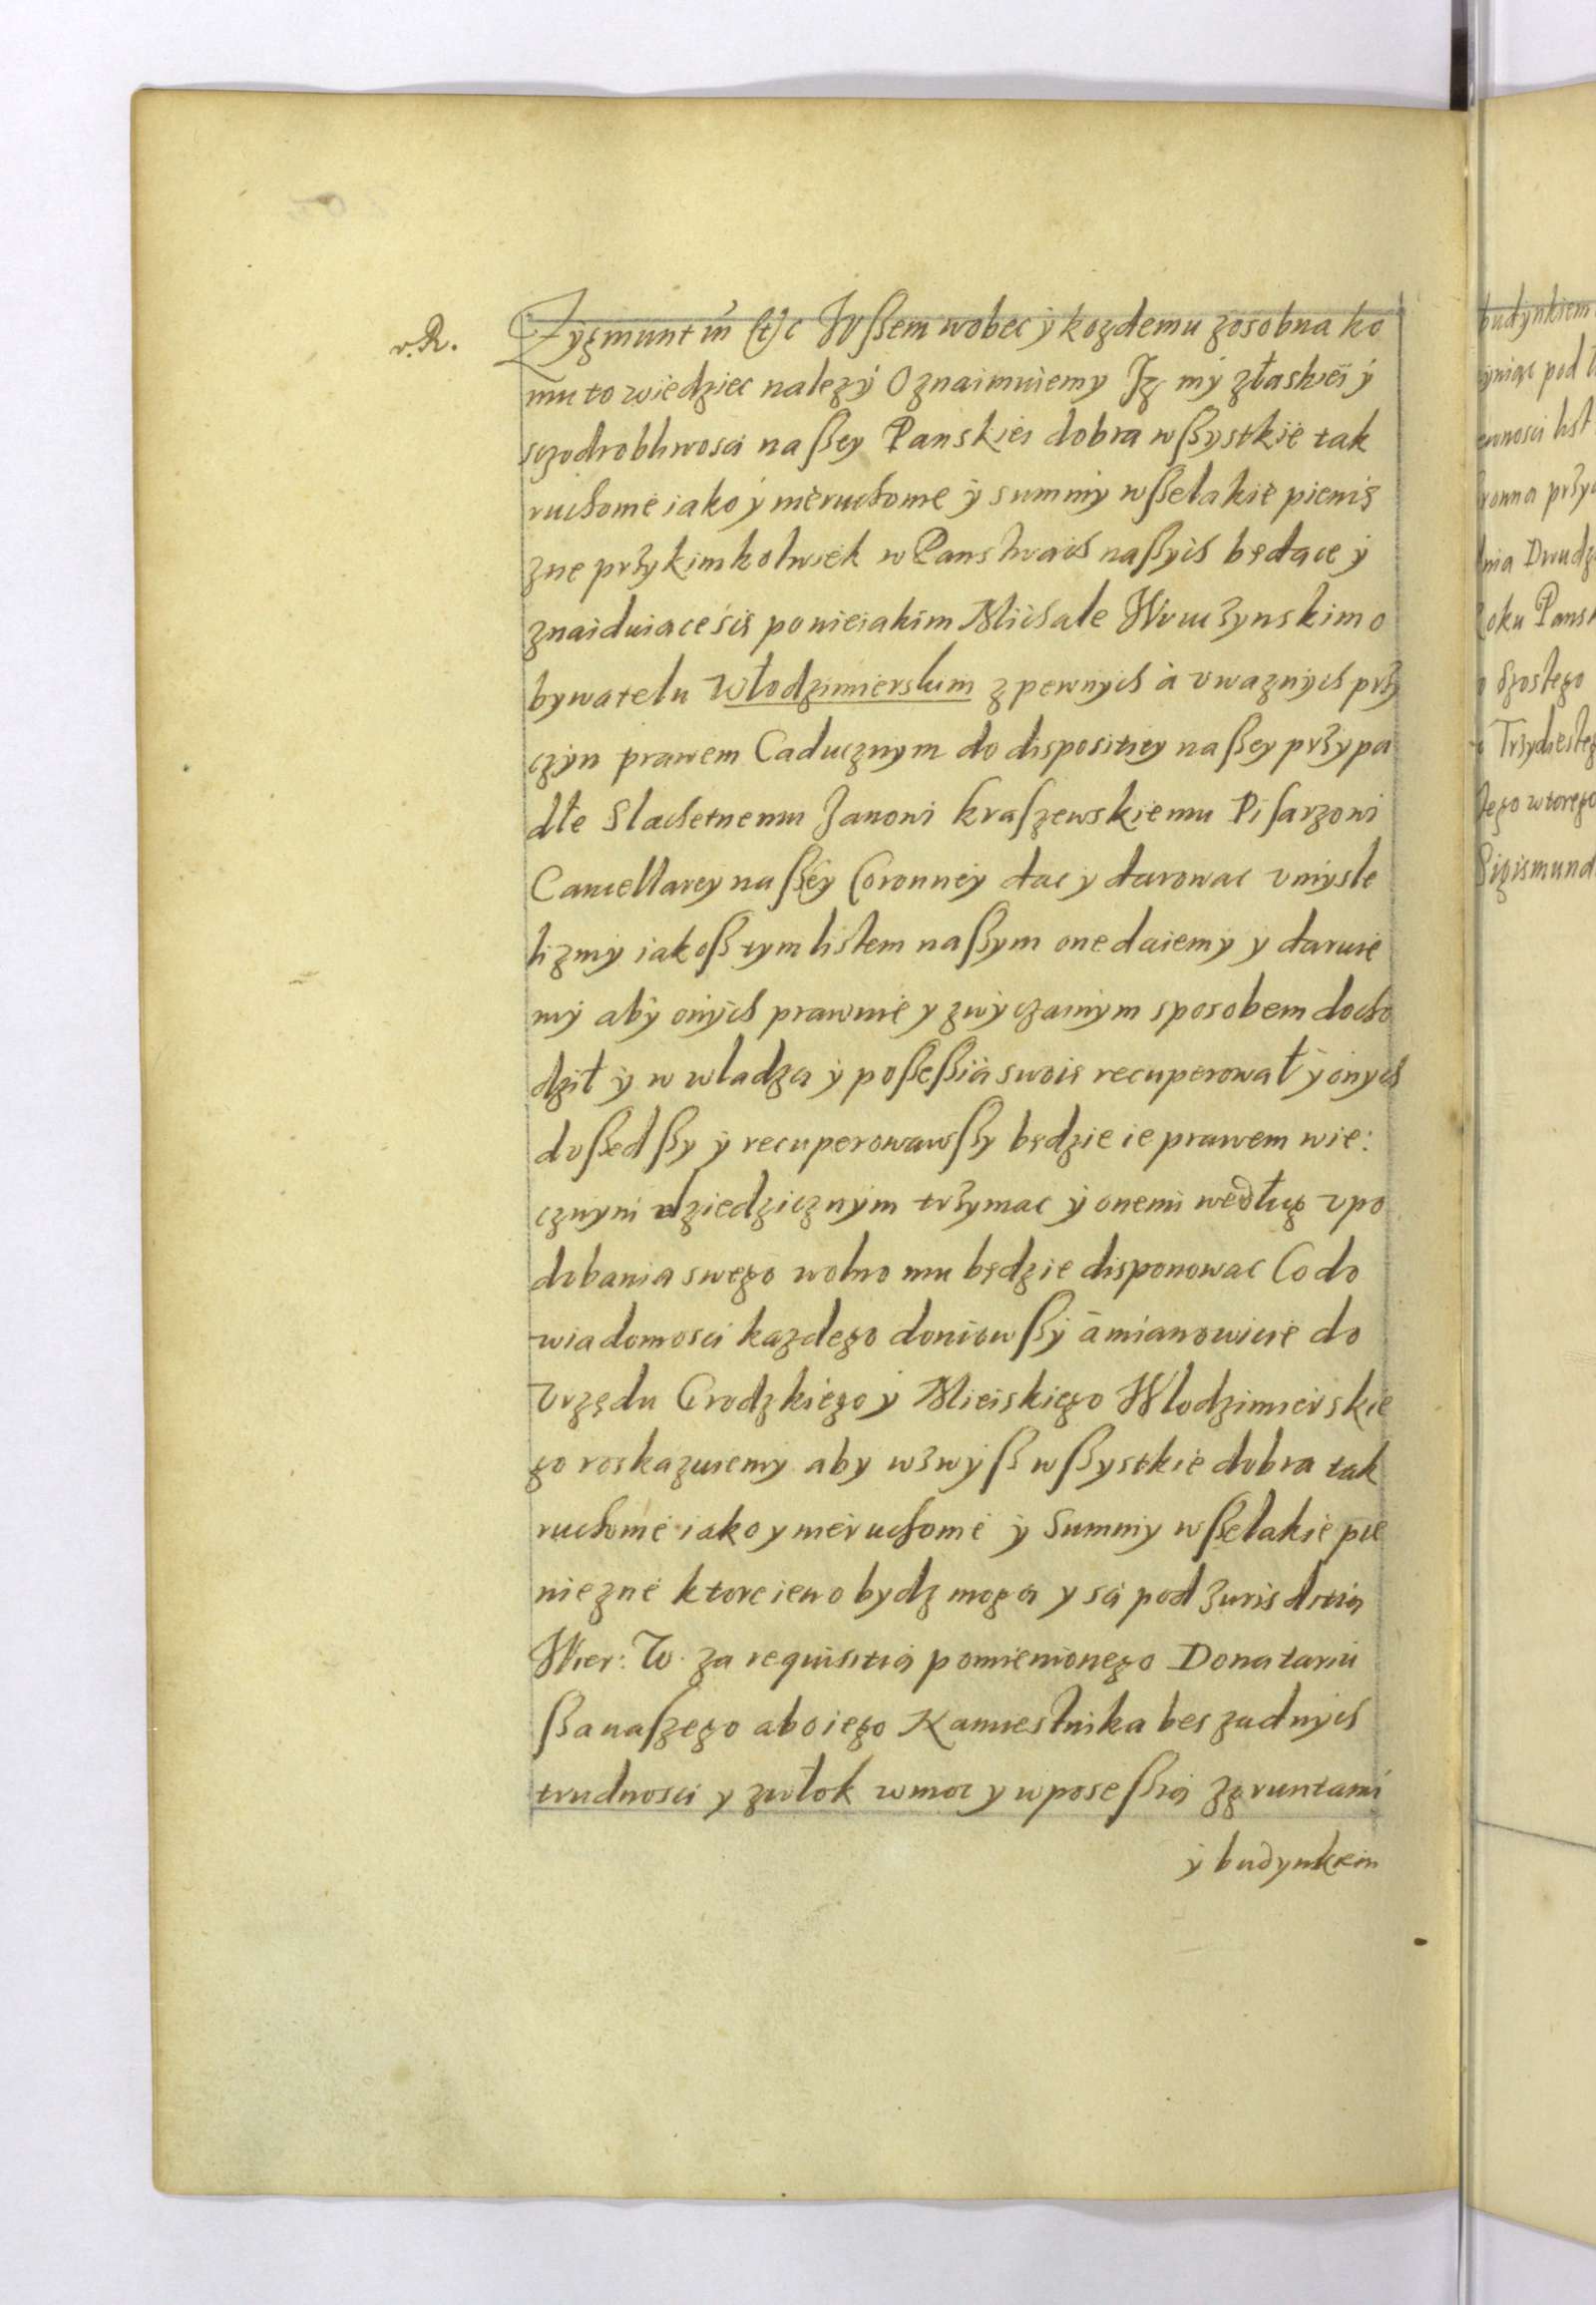 v. R.
Zygmunt III etc Wßem wobec ÿ kozdemu zosobna ko
mu to wiedziec nalezÿ Oznaimuiemy Iz mÿ złaskiei ÿ
sczodrobliwosci naßey Panskiei dobra wßystkie tak
ruchome iako ÿ nieruchome ÿ summÿ wßelakie pienię
zne przykimkolwiek w Panstwach naßÿch będące ÿ
znaiduiace się ponieiakim Michale Wruszynskim o
bywatelu Włodzimierskim z pewnÿch à vwaznÿch przÿ
czÿn prawem Caducznÿm do dispositiey naßey przÿpa
dłe Slachetnemu Janowi Kraszewskiemu Pisarzowi
Cancellarey naßéy Coronnéy dac y darowac vmÿsle
lizmÿ iakoß tym listem naßym one daiemÿ ÿ daruie
mÿ abÿ onÿch prawnie y zwÿczainÿm sposobem docho
dził ÿ w wladzą ÿ poßeßią swoię recuperował ÿ onych
doßedßy ÿ recuperowawßy będzie ie prawem wie:
cznÿm dziedzicznÿm trzymac ÿ onemi według vpo
dobania swego wolno mu będzie disponowac Co do
wiadomosci kazdego doniowßÿ a mianowicie do
Vrzędu Grodzkiego ÿ Mieiskiego Wlodzimierskie
go roskazuiemy aby wzwÿß wßystkie dobra tak
ruchome iako y nieruchome ÿ Summÿ wßelakie pie
niezne ktore ieno bydz mogą y są pod Jurisdictią
Wier: W. za requisitią pomienionego Donatariu
ßa naszego abo iego Namiestnika bes zadnÿch
trudnosci y zwłok w moc y w poseßią z gruntami
ÿ budynkiem
budÿnkiem
Trzydziesteg
Sigismund